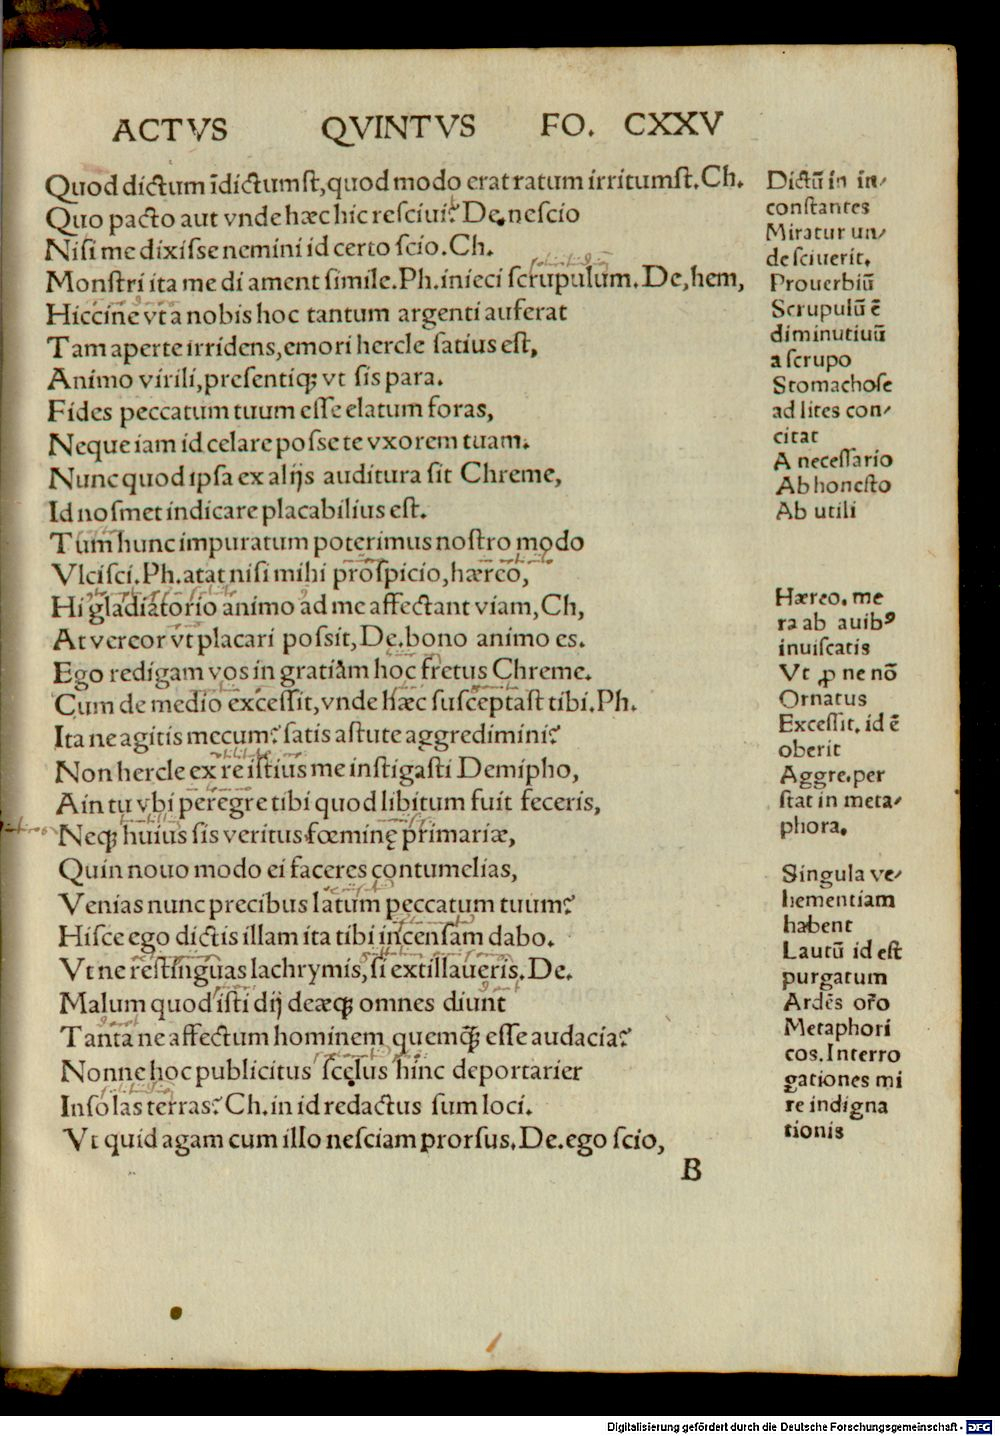 ACTVS QVINTVS FO. CXXV
Quod dictum īdictumst, quod modo erat ratum irritumst. Ch.
Quo pacto aut vnde hæc hic resciuit? De. nescio
Nisi me dixisse nemini id certo scio. Ch.
Monstri ita me di ament simile. Ph. inieci scrupulum. De, hem,
Hiccine vt a nobis hoc tantum argenti auferat
Tam aperte irridens, emori hercle satius est,
Animo virili, presentiq; vt sis para.
Fides peccatum tuum esse elatum foras,
Neque iam id celare posse te vxorem tuam.
Nunc quod ipsa ex alijs auditura sit Chreme,
Id nosmet indicare placabilius est.
Tum hunc impuratum poterimus nostro modo
Vlcisci. Ph. atat nisi mihi prospicio, hæreo,
Hi gladiatorio animo ad me affectant viam, Ch,
At vereor vt placari possit, De. bono animo es.
Ego redigam vos in gratiam hoc fretus Chreme.
Cum de medio excessit, vnde hæc susceptast tibi. Ph.
Ita ne agitis mecum? satis astute aggredimini?
Non hercle ex re istius me instigasti Demipho,
Ain tu vbi peregre tibi quod libitum fuit feceris,
Neq; huius sis veritus fœminę primariæ,
Quin nouo modo ei faceres contumelias,
Venias nunc precibus latum peccatum tuum?
Hisce ego dictis illam ita tibi incensam dabo.
Vt ne restinguas lachrymis, si extillaueris. De.
Malum quod isti dij deæq; omnes diunt
Tanta ne affectum hominem quemq̃ esse audacia?
Nonne hoc publicitus scęlus hinc deportarier
In solas terras? Ch. in id redactus sum loci.
Vt quid agam cum illo nesciam prorsus. De. ego scio,
B
Dictū in in/
constantes
Miratur un/
de sciuerit.
Prouerbiū
Scrupulū ē
diminutiuū
a scrupo
Stomachose
ad lites con/
citat
A necessario
Ab honesto
Ab utili
Hæreo. me
ra ab auibꝰ
inuiscatis
Vt ꝓ ne nō
Ornatus
Excessit. id ē
oberit
Aggre. per
stat in meta/
phora.
Singula ve/
hementiam
habent
Lautū id est
purgatum
Ardēs or̃o
Metaphori
cos. Interro
gationes mi
re indigna
tionis
Digitalisierung gefördert durch die Deutsche Forschungsgemeinschaft - DFG